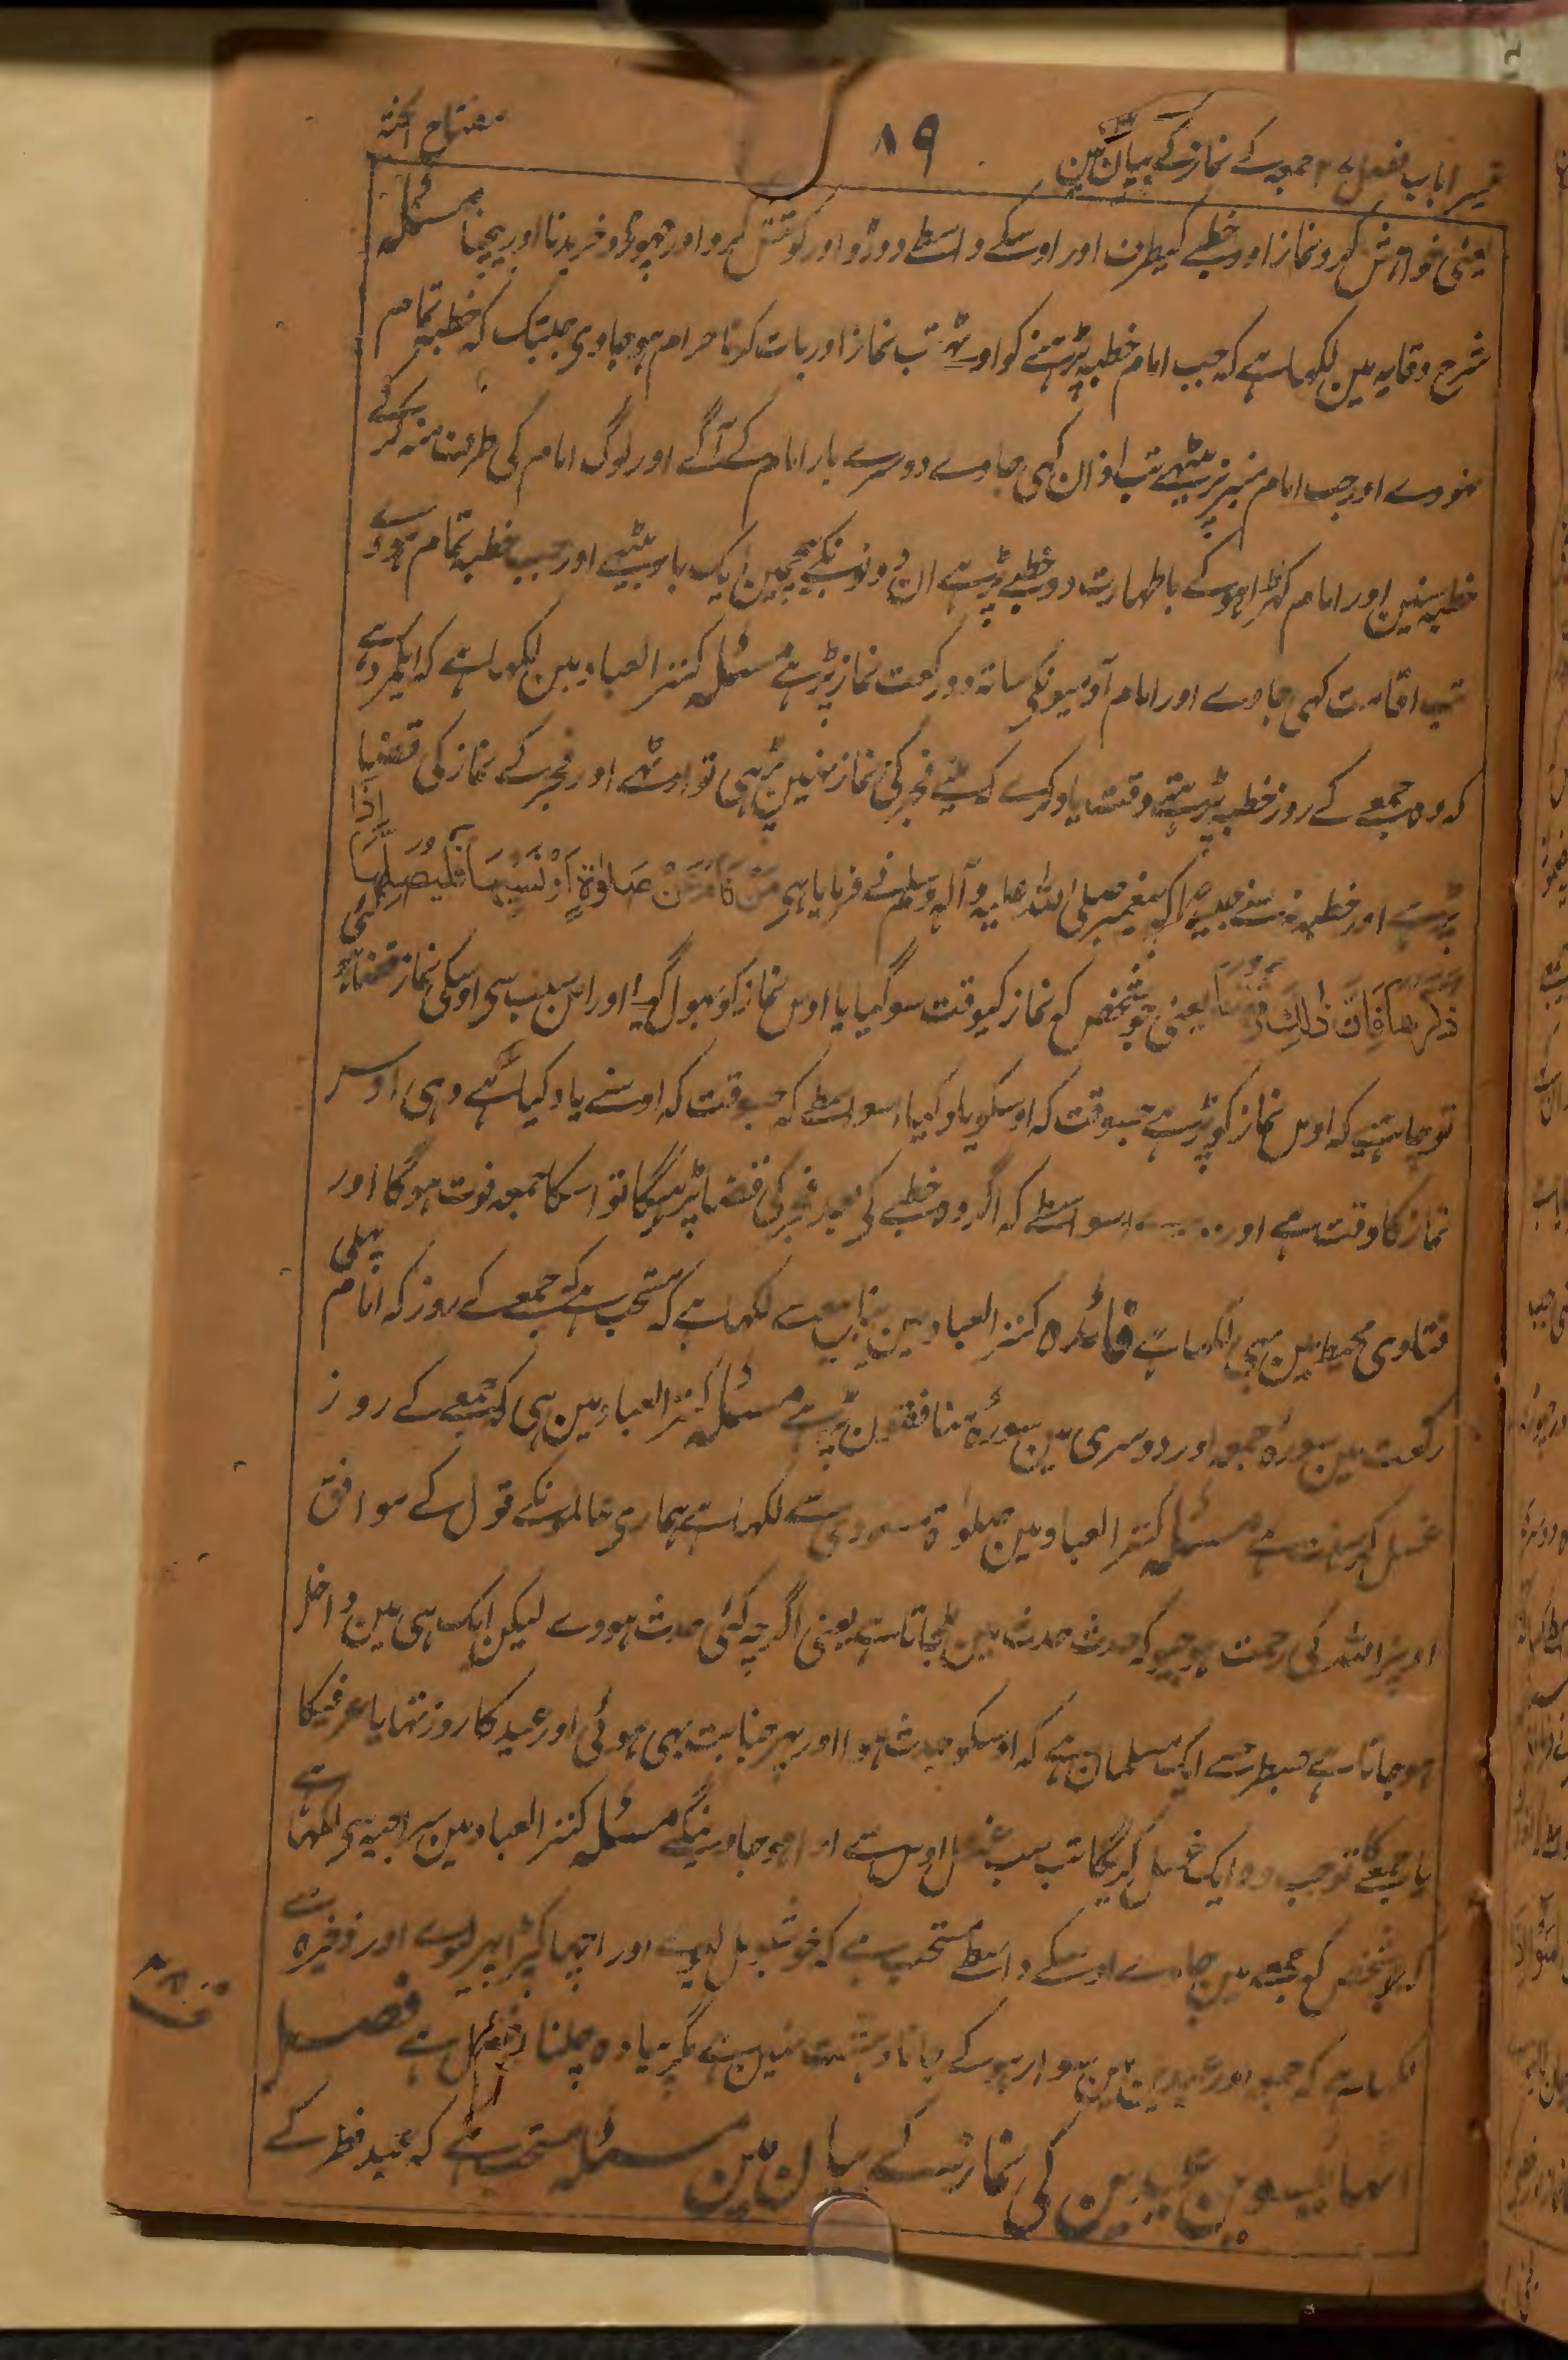 تیسرا باب فصل ۲۷ جمعہ کے نماز کے بیان مین
۸۹
مفتاح الجنہ
یعنی خواہش کرو نماز اور خطبے کیطرف اور اوسکے واسطے دوڑو اور کوشش کرو اور چھوڑو خریدنا اور بیچنا مسئلہ
شرح وقایہ مین لکھا ہے کہ جب امام خطبہ پڑہنے کو اوٹھے تب نماز اور بات کرنا حرام ہو جاوی جبتک کہ خطبہ تمام
ہنووے اور جب امام منبر پر بیٹھے تب اذان کہی جاوے دوسرے بار امام کے آگے اور لوگ امام کی طرف منہ کرکے
خطبہ سنین اور امام کھڑا ہو کے با طہارت دو خطبے پڑہے ان دونونکے بیچمین ایک بار بیٹھے اور جب خطبہ تمام ہووے
تب اقامت کہی جاوے اور امام آدمیونکی ساتہ دو رکعت نماز پڑہے مسئلہ کنز العباد مین لکھا ہے کہ ایکمرد ہے
کہ وہ جمعے کے روز خطبہ پڑہتے وقت یاد کرے کہ مینے فجر کی نماز نہین پڑہی تو اوٹھے اور فجر کے نماز کی قضا
پڑہے اور خطبہ نہ سنے جیسا کہ پیغمبر صلی اللہ علیہ وآلہ وسلم نے فرمایا ہی مَنْ نَامَ عَنْ صَلوٰةٍ اَوْ نَسِیَہَا فَلْیُصَلِّہَا اِذَا
ذَکَرَھَا فَاِنَّ ذٰلِکَ وَقْتُہَا یعنی جو شخص کہ نماز کیوقت سو گیا یا اوس نماز کو بہول گیا اور اس سبب سی اوسکی نماز قضا ہوئی
تو چاہئیے کہ اوس نماز کو پڑہے جسوقت کہ اوسکو یاد کیا اسواسطے کہ جسوقت کہ اوسنے یاد کیا ہے وہی اوس
نماز کا وقت ہے اور اسواسطے کہ اگر وہ خطبے کی بعد فجر کی قضا پڑہیگا تو اسکا جمعہ فوت ہوگا اور
فتاوی محیط مین بہی لکھا ہے فائدہ کنز العباد مین لکھا ہے کہ مستحب ہے کہ جمعے کے روز کہ امام پہلی
رکعت مین سورۂ جمعہ اور دوسری مین سورۂ منافقون پڑہے مسئلہ کنز العباد مین ہی کہ جمعے کے روز
غسل کرنا سنت ہے مسئلہ کنز العباد مین صلوٰة مسعودی سے لکھا ہے ہماری عالمونکے قول کے موافق
اوپر اللہ کی رحمت ہوجیو کہ حدث حدث مین ملجاتا ہے یعنی اگرچہ کئی حدث ہووے لیکن ایک ہی مین داخل
ہو جاتا ہے جسطرح سے ایک مسلمان ہے کہ اوسکو حدث ہوا اور پہر جنابت بہی ہوئی اور عید کا روز تہا یا عرفیکا
یا جمعے کا تو جب وہ ایک غسل کریگا تب سب غسل اوس سے ادا ہو جاوینگے مسئلہ کنز العباد مین سراجیہ سی لکھا ہے
کہ جو شخص کہ جمعہ مین جاوے اوسکے واسطے مستحب ہے کہ خوشبو مل لیوے اور اچھا کپڑا پہر لیوے اور ذخیرہ سے
لکھا ہے کہ جمعہ اور عیدین مین سوار ہو کے جانا دہشت نہین ہے مگر پیادہ چلنا افضل ہے فصل
اٹھائیسوین عیدین کی نماز کے بیان مین مسئلہ مستحب ہے کہ عید فطر کے
ف ۲۸